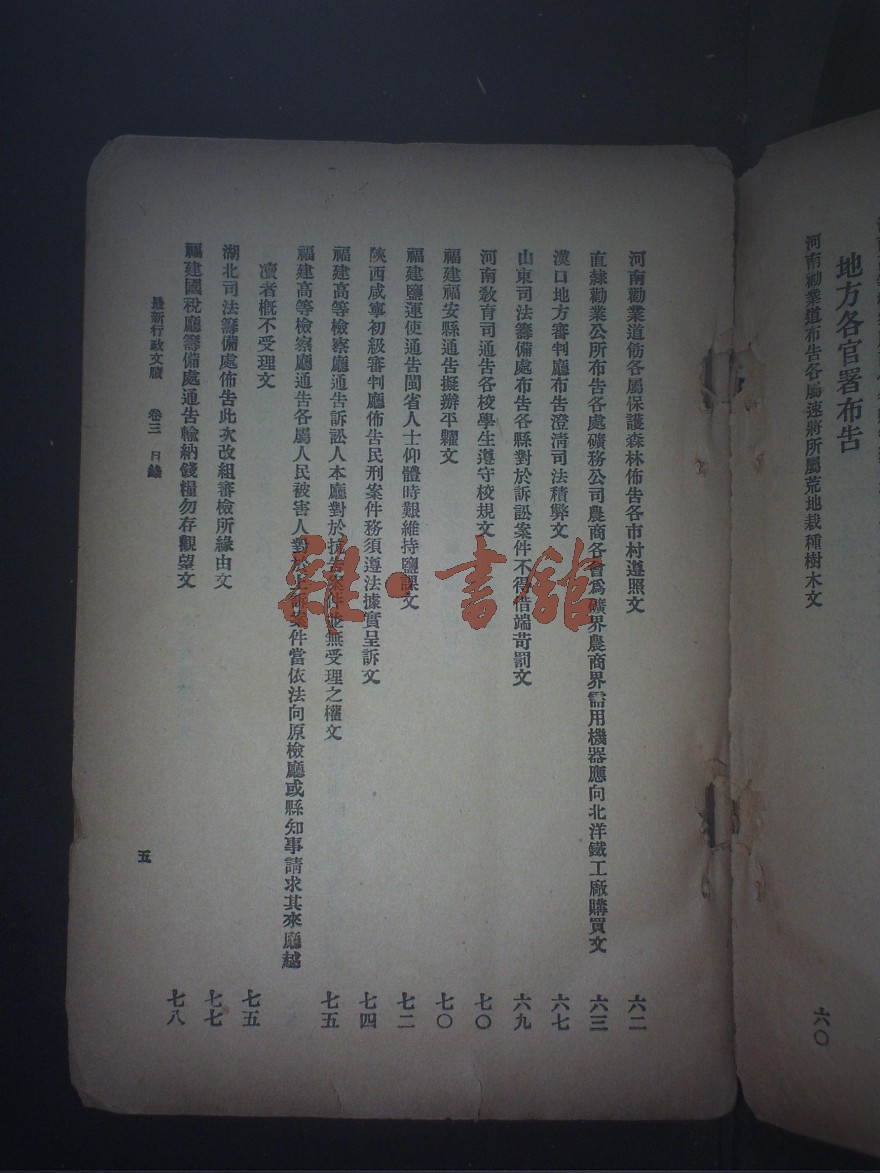 地方各官署布告
河南勸業道布告各屬速將所屬荒地栽種樹木文 六〇
河南勸業道飭各屬保護森林佈告各市村遵照文 六二
直隸勸業公所布告各處礦務公司農商各會爲礦界農商界需用機器應向北洋鐵工廠購買文 六三
漢口地方審判廳布告澄清司法積弊文 六七
山東司法籌備處布告各縣對於訴訟案件不得借端苛罰文 六九
河南敎育司通告各校學生遵守校規文 七〇
福建福安縣通告擬辦平糶文 七〇
福建鹽運使通告閩省人士仰體時艱維持鹽課文 七二
陝西咸寧初級審判廳佈告民刑案件務須遵法據實呈訴文 七四
福建高等檢察廳通告訴訟人本廳對於抗告案件並無受理之權文 七五
福建高等檢察廳通告各屬人民被害人對於上訴案件當依法向原檢廳或縣知事請求其來廳越
瀆者槪不受理文 七五
湖北司法籌備處佈告此次改組審檢所緣由文 七七
福建國稅廳籌備處通告輸納錢糧勿存觀望文 七八
最新行政文牘 卷三 目錄 五
雜·書館